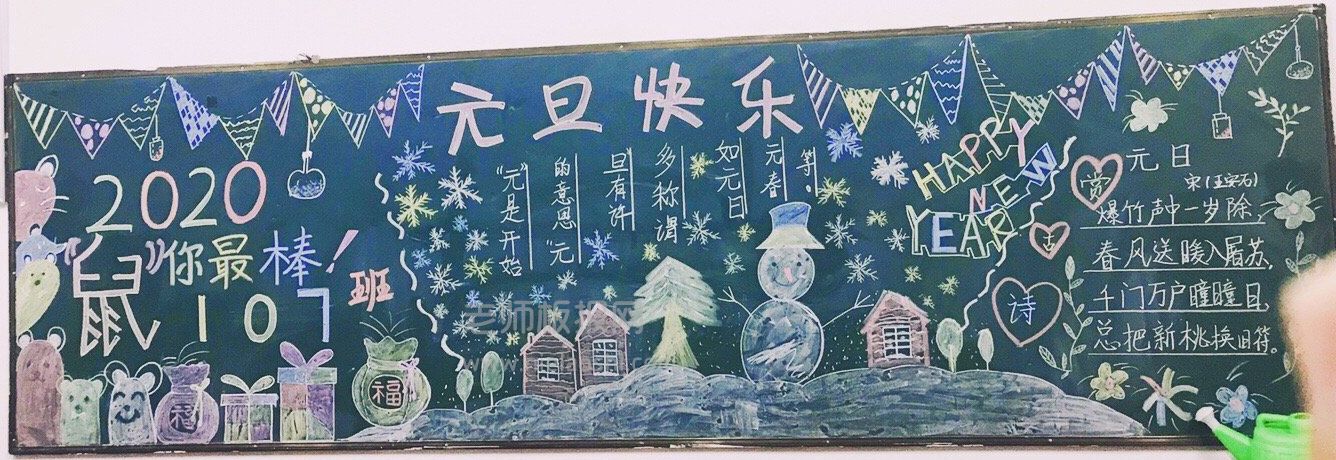 元旦快乐
2020
"鼠"你最棒！
107班
"元"是开始
的意思."元
旦有许
多称谓
如元日
元春
等.
HAPPY
NEW
YEAR
赏
古
诗
元日
宋(王安石)
爆竹声中一岁除,
春风送暖入屠苏,
千门万户瞳瞳日,
总把新桃换旧符。
福
福
老师板报网